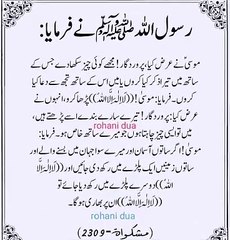 رسول اللہ ﷺ نے فرمایا:
موسیٰ نے عرض کیا، پروردگار! مجھے کوئی چیز سکھا دے جس کے
ساتھ میں تیرا ذکر کیا کروں یا میں اس کے ساتھ تجھ سے دعا کیا
کروں۔ فرمایا: موسیٰ! ((لَا اِلٰہَ اِلَّا اللہُ)) پڑھا کرو، انہوں نے
rohani dua
عرض کیا، پروردگار! تیرے سارے بندے اسے پڑھتے ہیں،
میں تو ایسی چیز چاہتا ہوں جو میرے ساتھ خاص ہو۔ فرمایا:
موسیٰ! اگر ساتوں آسمان اور میرے سوا جہان میں بسنے والے اور
ساتوں زمینیں ایک پلڑے میں رکھ دی جائیں اور ((لَا اِلٰہَ اِلَّا
اللہُ)) دوسرے پلڑے میں رکھ دیا جائے تو
((لَا اِلٰہَ اِلَّا اللہُ)) ان پر بھاری ہوگا۔
rohani dua
(مشکوٰۃ - 2309)